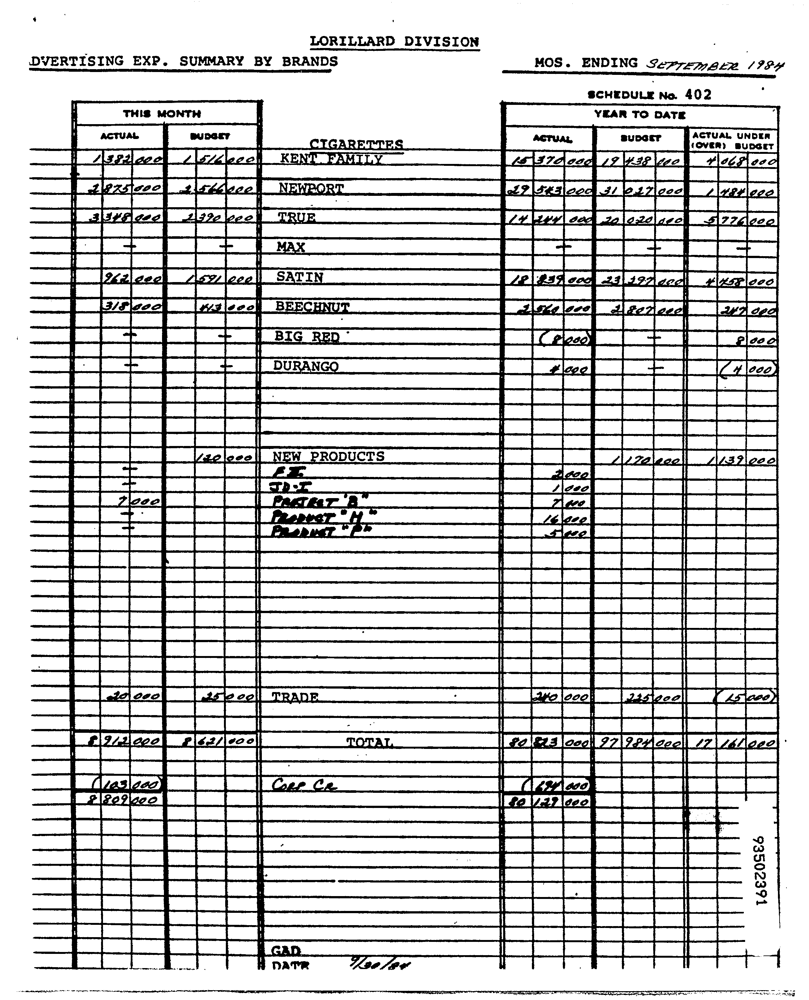 LORILLARD DIVISION
DVERTISING EXP. SUMMARY BY BRANDS MOS. ENDING SEPTEMBER 1984
SCHEDULE No. 402
THIS MONTH YEAR TO DATE
ACTUAL BUDGET CIGARETTES ACTUAL BUDGET ACTUAL UNDER (OVER) BUDGET
1 382 000 1 516 000 KENT FAMILY 15 370 000 19 438 000 4 068 000
2 875 000 2 566 000 NEWPORT 29 543 000 31 027 000 1 484 000
3 348 000 2 390 000 TRUE 14 244 000 20 020 000 5 776 000
— — MAX — — —
962 000 1 591 000 SATIN 18 839 000 23 297 000 4 458 000
318 000 413 000 BEECHNUT 2 560 000 2 807 000 247 000
— — BIG RED (8 000) — 8 000
— — DURANGO 4 000 — (4 000)
120 000 NEW PRODUCTS 1 170 000 1 139 000
— 2 000
— JD-I 1 000
7 000 PROJECT "B" 7 000
— PRODUCT "M" 16 000
— PRODUCT "P" 5 000
20 000 25 000 TRADE 240 000 225 000 (15 000)
8 912 000 8 621 000 TOTAL 80 823 000 97 984 000 17 161 000
(103 000) CORP CR (694 000)
8 809 000 80 129 000
93502391
GAD
DATE